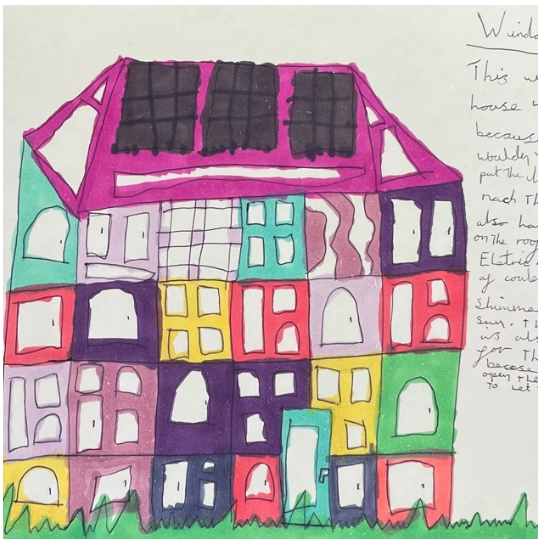 Windo
This w
house w
because
wouldn't
put the l
mach Th
also ha
on the roof
Elctric
of coule
shimme
Sun. Th
us als
for Th
becose
open the
To let